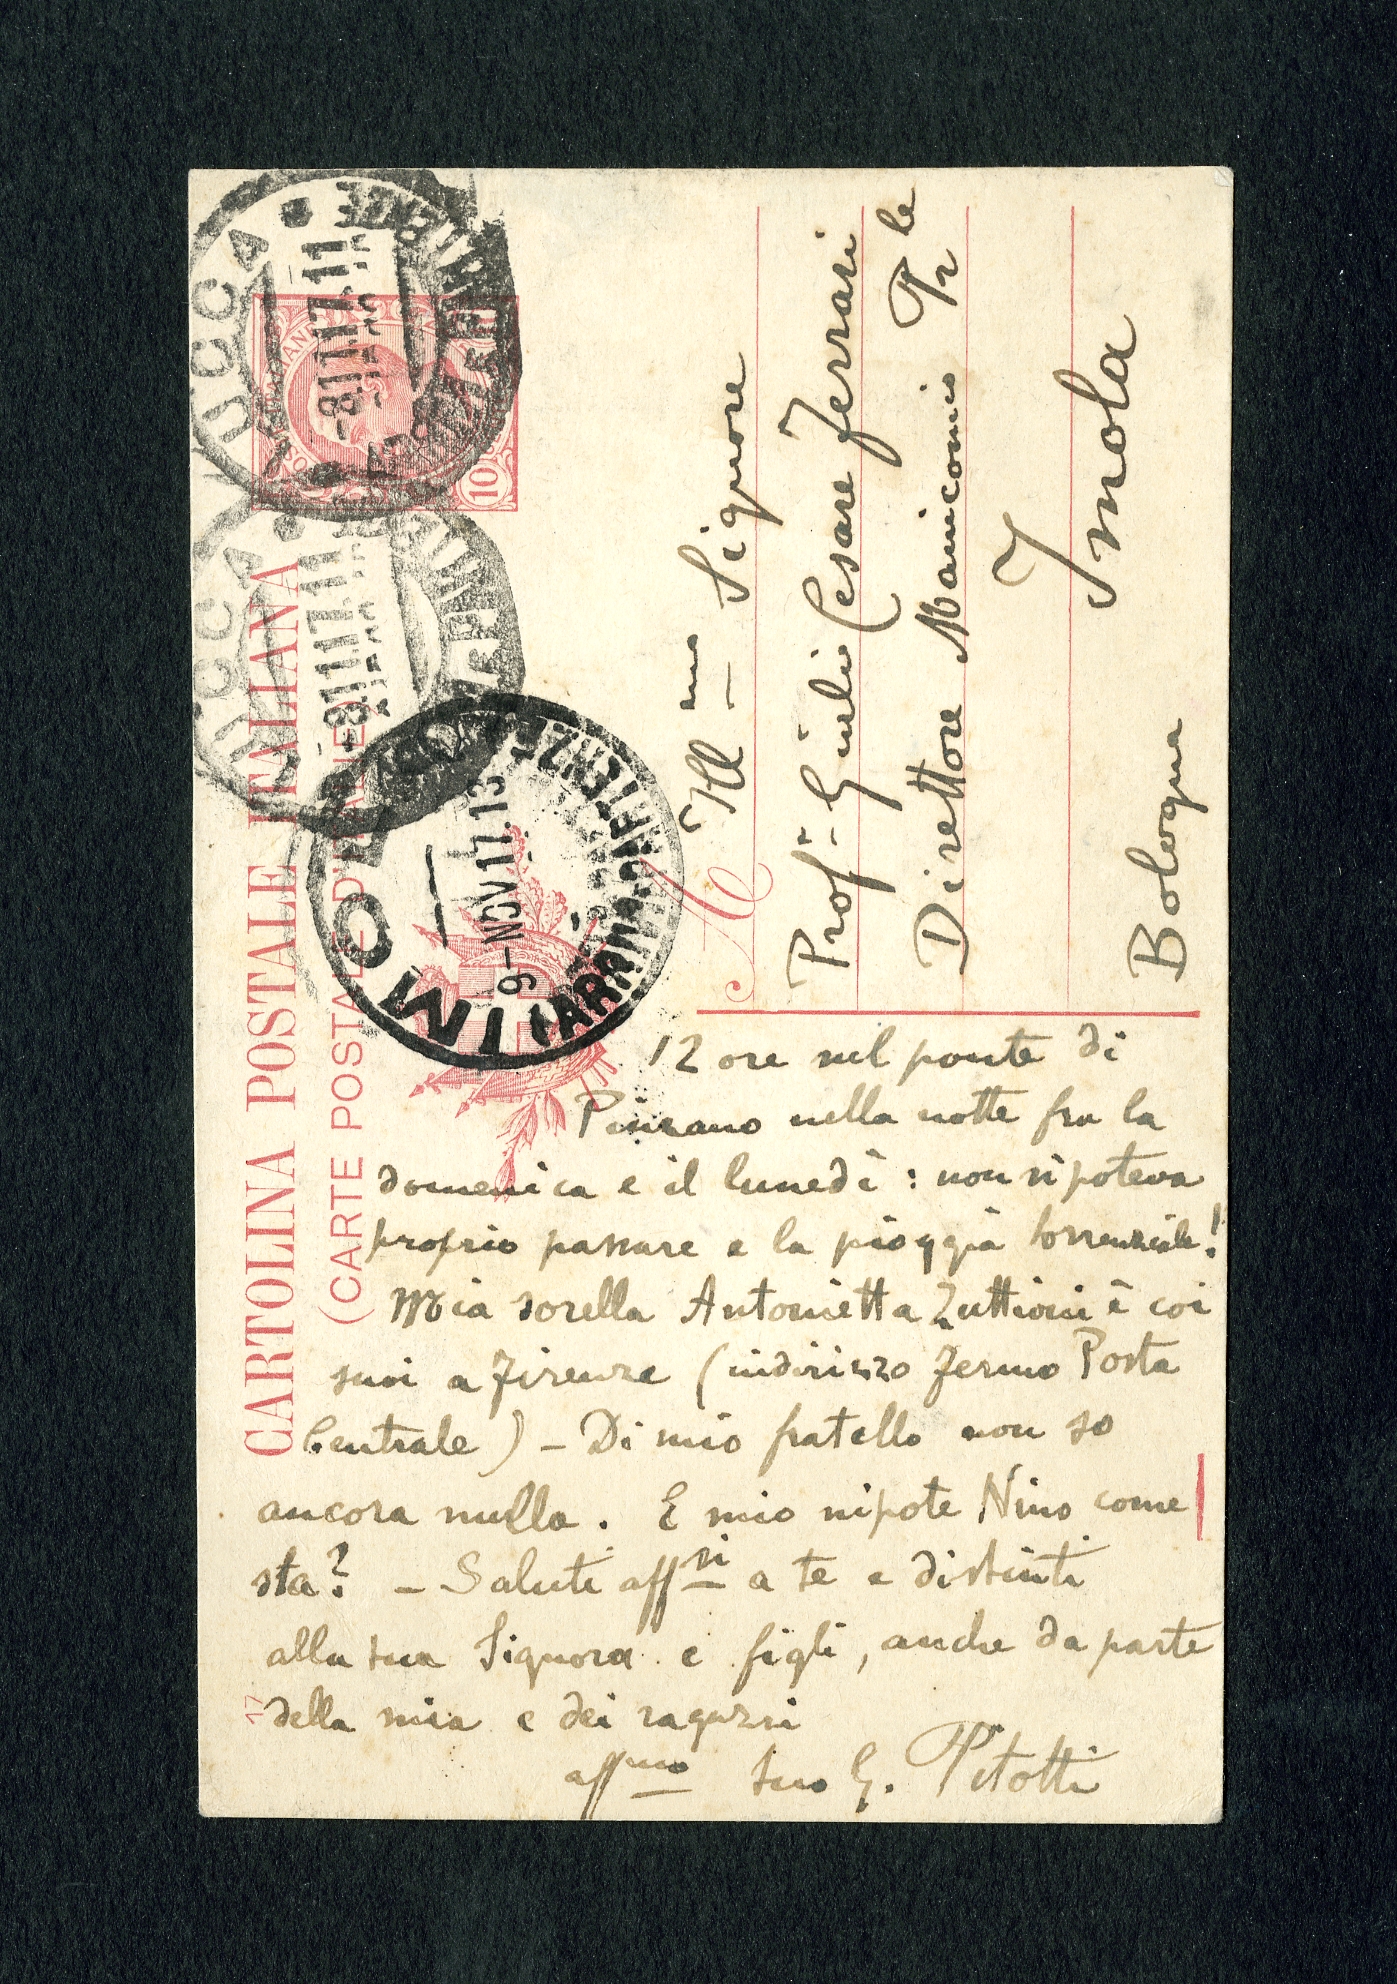 CARTOLINA POSTALE ITALIANA
(CARTE POSTALE D'ITALIE)
10
LUCCA
-8.11.17.11
LUCCA
-8.11.17.11
IMO
9-NOV.17.13
(ARRIVI PARTENZE
A
Ill mo Signore
Prof.r Giulio Cesare Ferrari
Direttore Manicomio Pr le
Imola
Bologna
12 ore nel ponte di
Pinzano nella notte fra la
domenica e il lunedì: non si poteva
proprio passare e la pioggia torrenziale!
Mia sorella Antonietta Zuttioni è coi
suoi a Firenze (indirizzo Fermo Posta
Centrale) - Di mio fratello non so
ancora nulla. E mio nipote Nino come
sta? - Saluti aff si a te e distinti
alla tua Signora e figli, anche da parte
della mia e dei ragazzi
aff mo tuo G. Pitotti
17